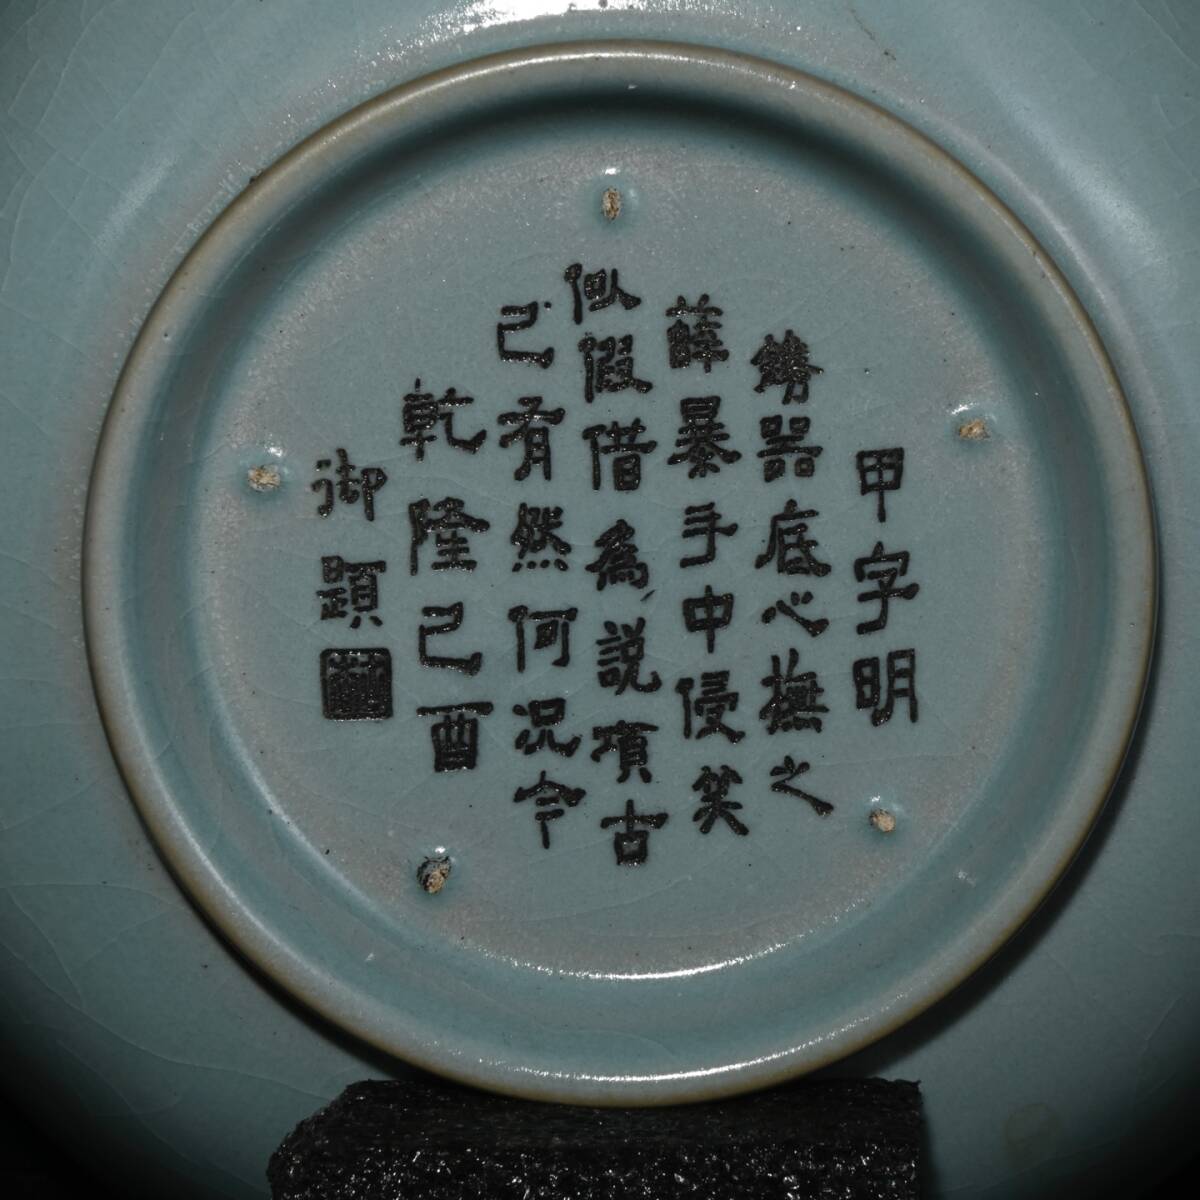 甲字明
鐫器底心撫之
薛暴手中侵笑
似假借為說項古
已有然何況今
乾隆己酉
御題